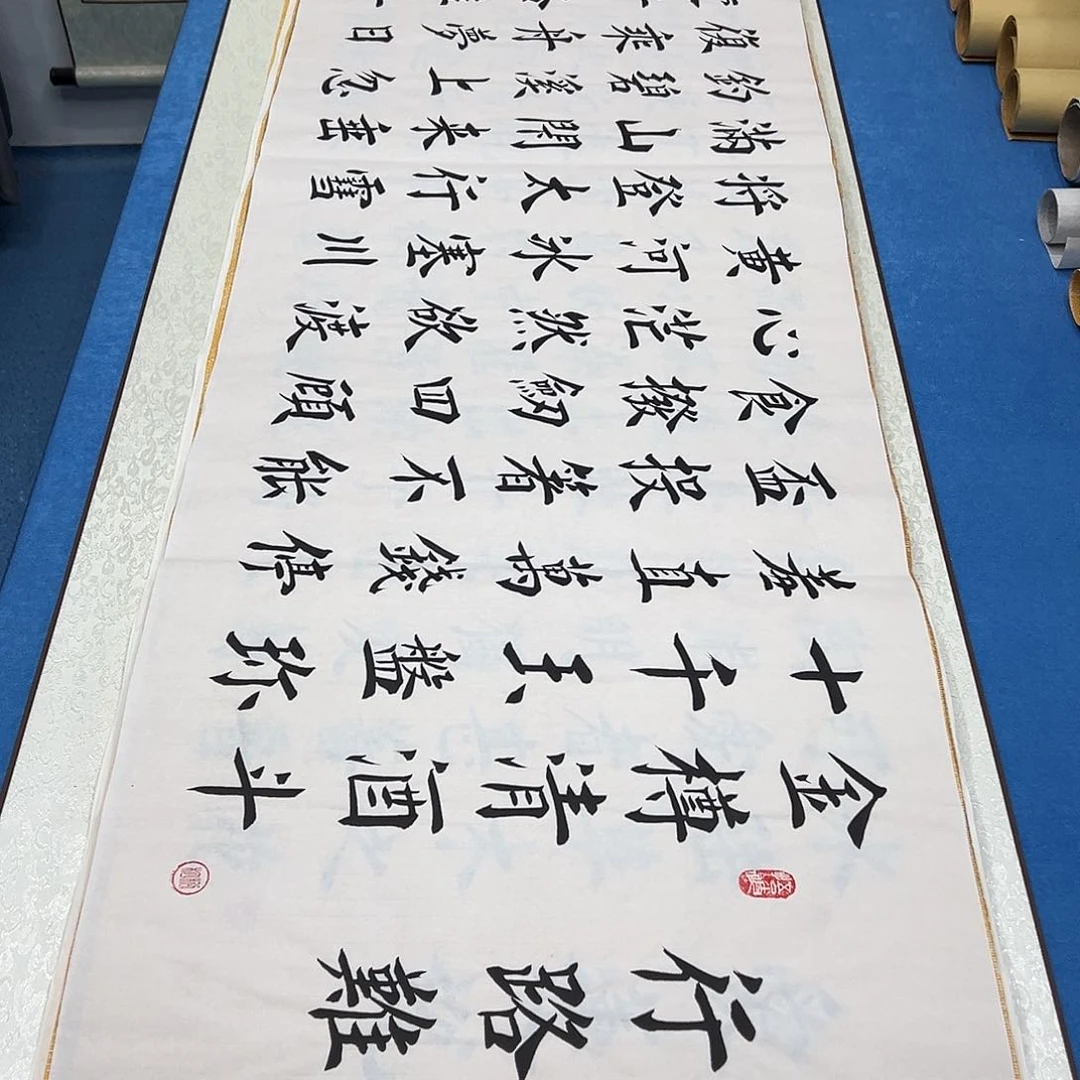 行路難
金樽清酒斗
十千玉盤珍
羞直萬錢停
盃投箸不能
食撥劍四顧
心茫然欲渡
黃河冰塞川
將登太行雪
滿山閑來垂
釣碧溪上忽
復乘舟夢日